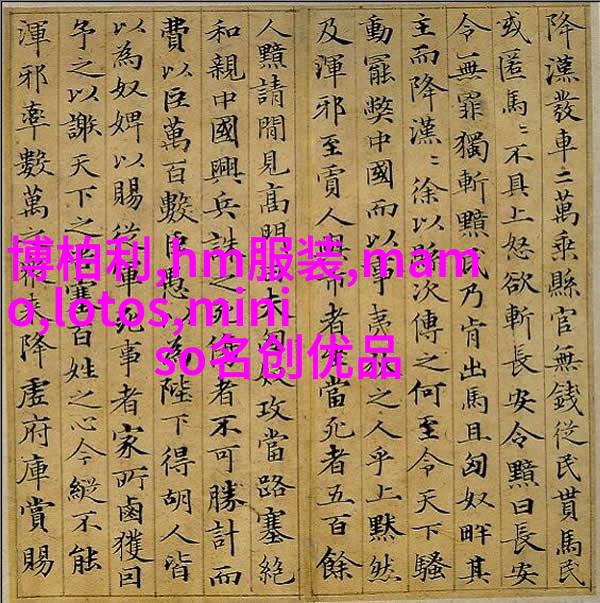 降漢發車二萬乘縣官無錢從民貰馬民
或匿馬〻不具上怒欲斬長安令黯曰長安
令無罪獨斬黯民乃肯出馬且匈奴畔其
主而降漢〻徐以縣次傳之何至令天下騷
動罷弊中國而以事夷狄之人乎上黙然
及渾邪至賈人與市者坐當死者五百餘
人黯請間見高門曰夫匈奴攻當路塞絶
和親中國興兵誅之死傷者不可勝計而
費以巨萬百數臣愚以為陛下得胡人皆
以為奴婢以賜從軍死事者家所鹵獲因
予之以謝天下之塞百姓之心今縱不能
渾邪率數萬之衆來降虛府庫賞賜
博柏利,hm服装,mam
o,lotos,mini
so名创优品